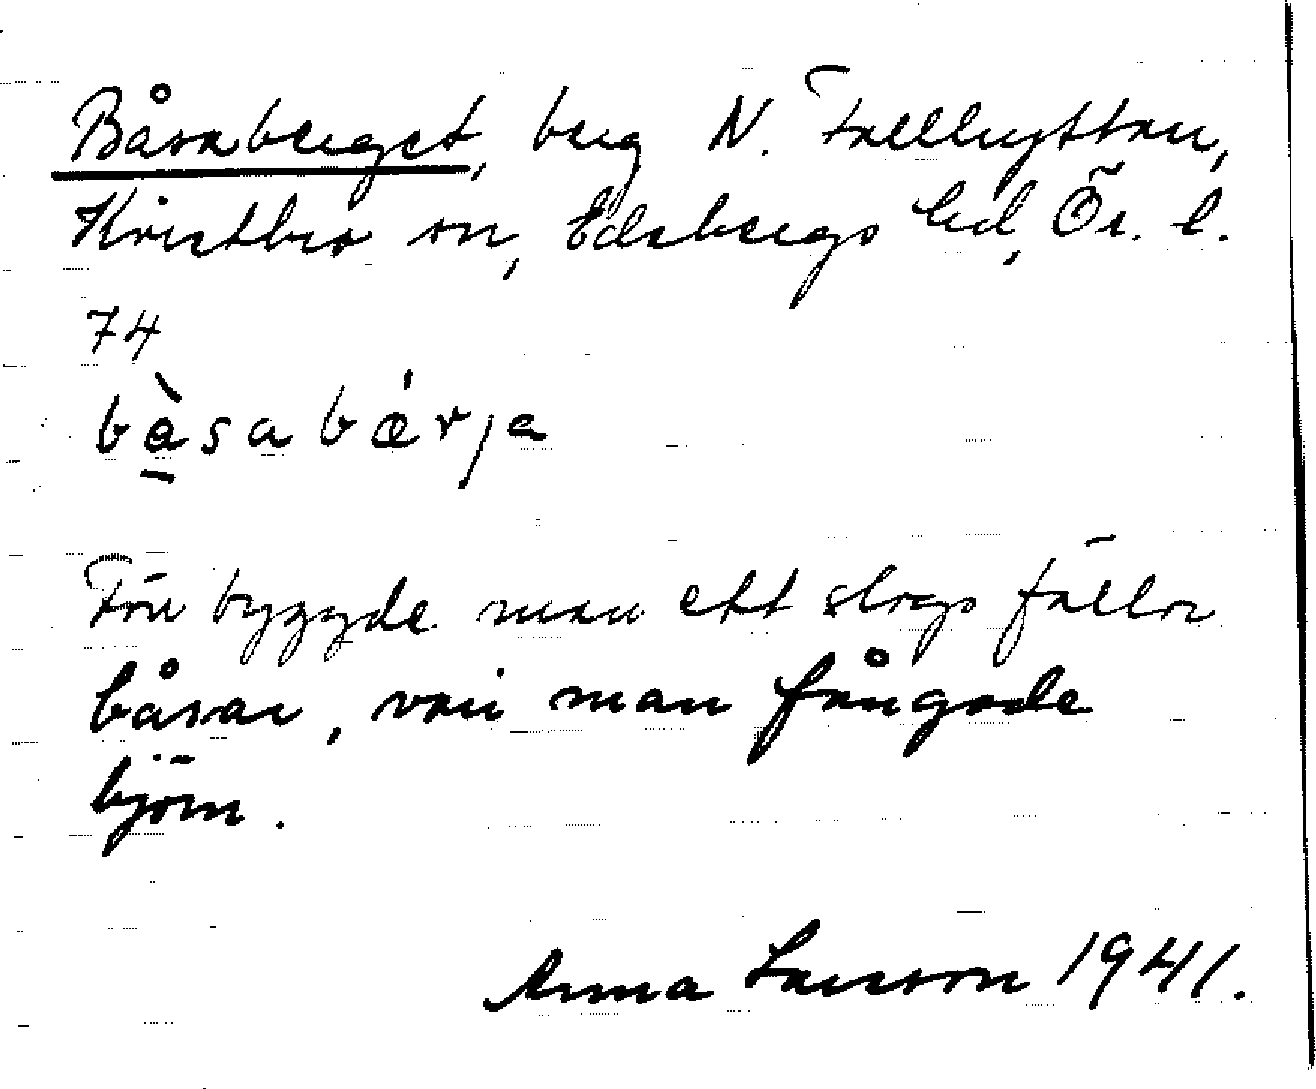 Båsaberget, berg N. Fallhyttan,
Kvistbro sn, Edsbergs hd, Ör. l.
74
bàsabǽrja
Förr byggde man ett slags fällor
båsar, vari man fångade
björn.
Anna Larsson 1941.